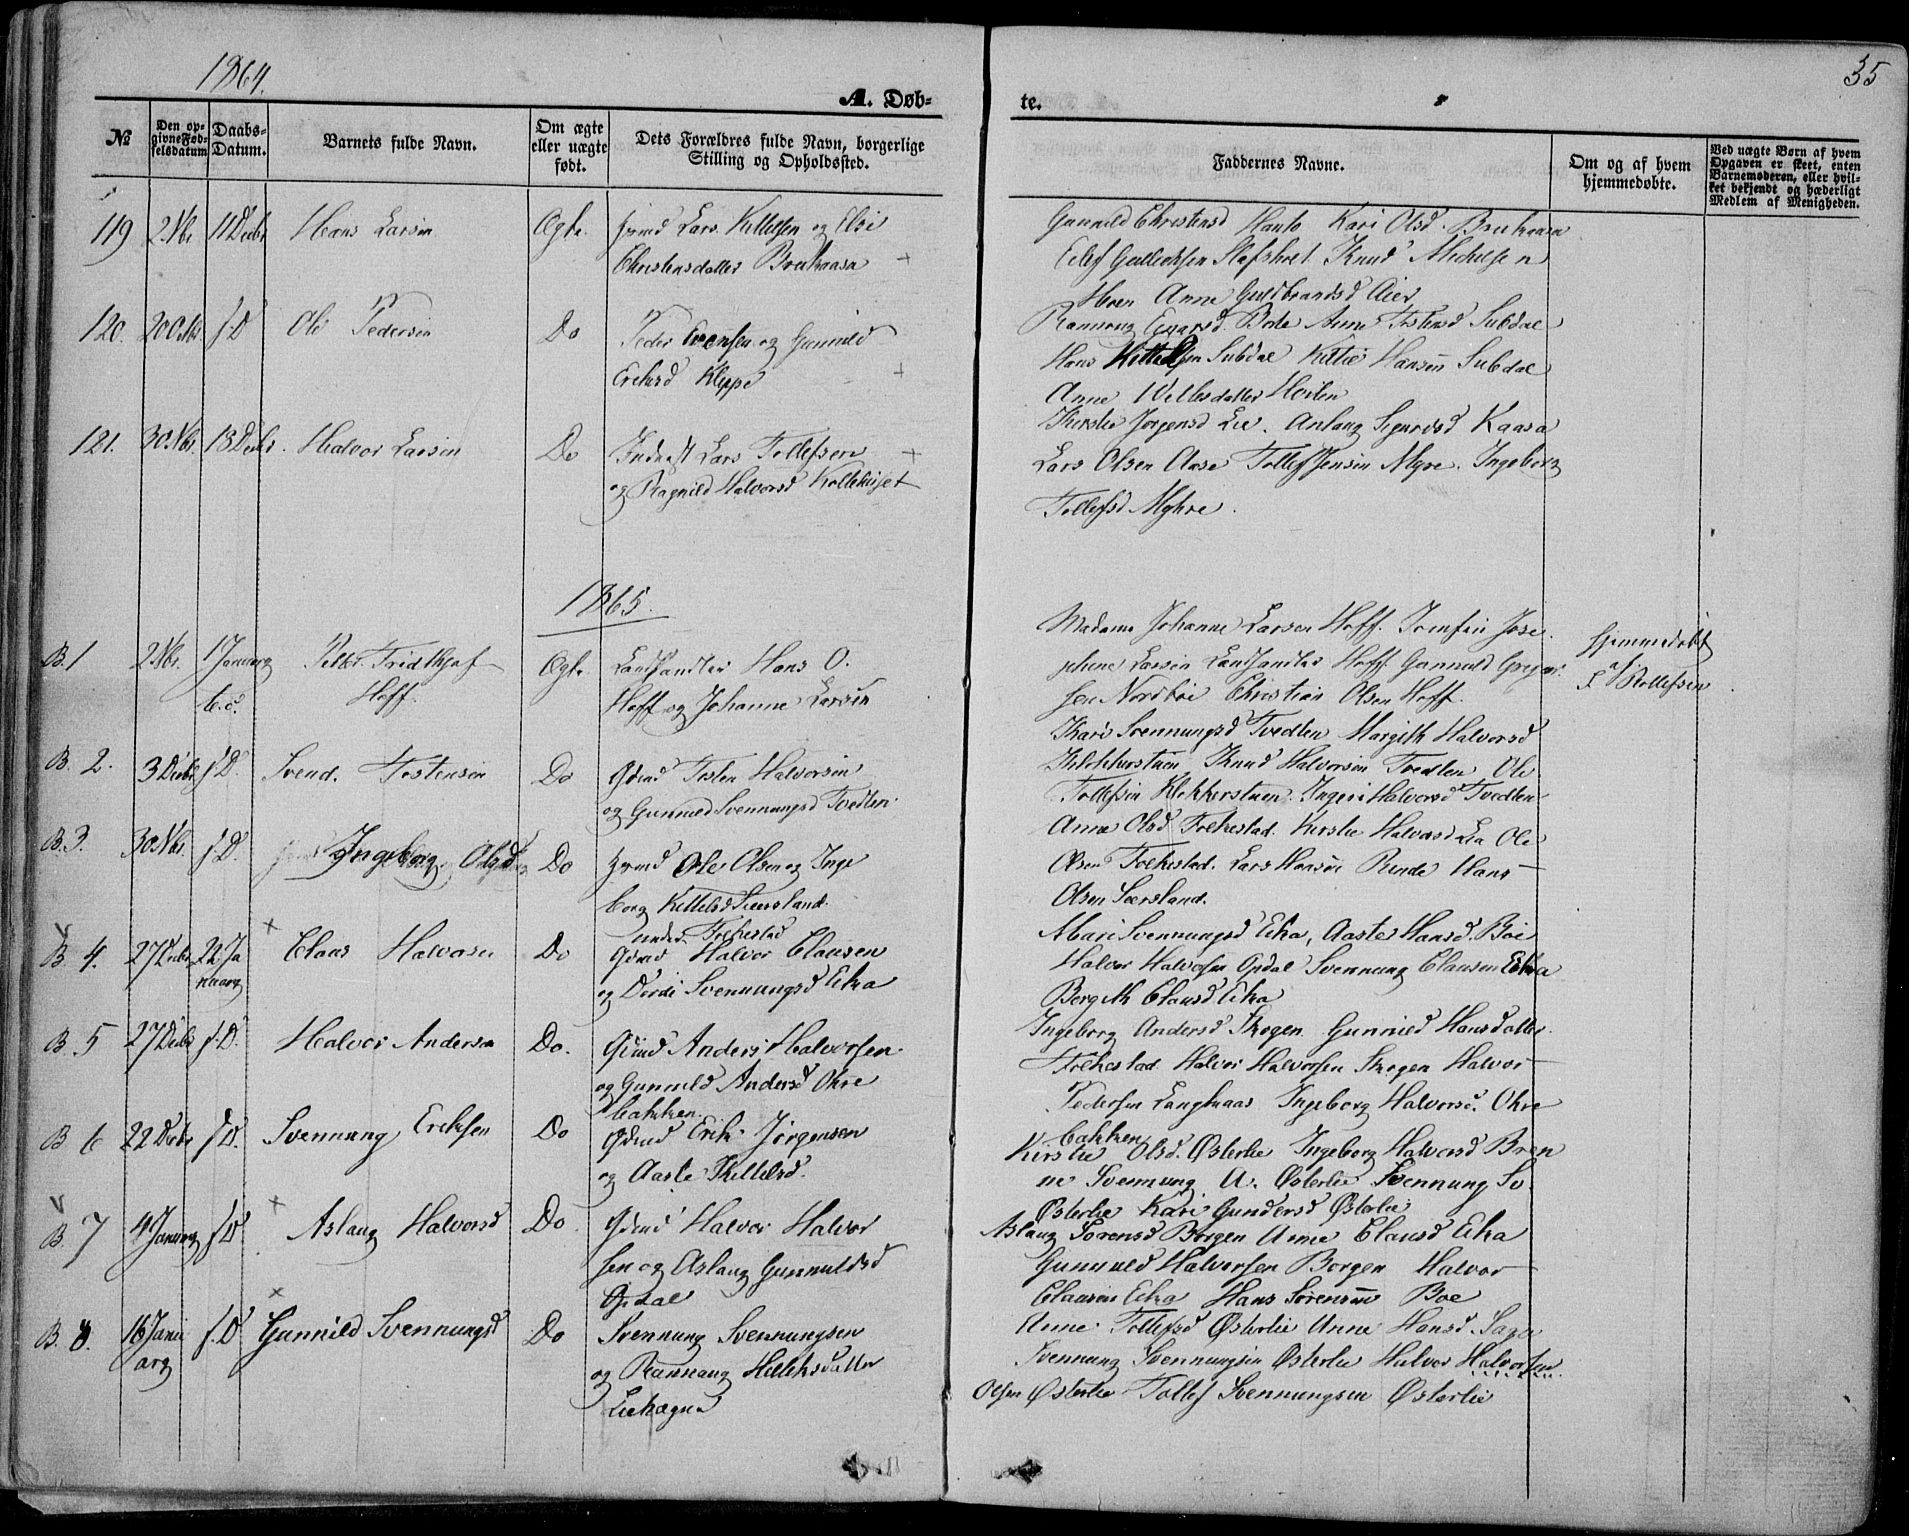 1864.
35
A. Døb-
te.
No
Den op-
givne Fød-
selsdatum
Daabs-
Datum.
Barnets fulde Navn.
Om ægte
eller uægte
født.
Dets Forældres fulde Navn, borgerlige
Stilling og Opholdssted.
Faddernes Navne.
Om og af hvem
hjemmedøbte.
Ved uægte Børn af hvem
Opgaven er skeet, enten
Barnemoderen, eller hvil-
ket bekjendt og hæderligt
Medlem af Menigheden.
119 2 Nbr 11 Decbr Hans Larsen Ægte. Lars Kittelsen og Elsi
Christensdatter Brukaasa
Gunnild Christensd Hauto Kari Olsd. Brukaasa
Eilef Gullichsen Knud Michelsen
Hoen Anne Guldbrandsd Aier
120. 20 f. D Ole Pedersen Do Peder Evensen og Gunnild
Eriksd Klippe
Rannoug Anne Tostensd Subdal
Hans Kittelsen Subdal Kittil Hansen Subdal
Anne
121. 30 Nbr. 18 Decbr. Halvor Larsen Do Lars Tollefsen
og Ragnild Halvorsd
Kirstie Jørgensd Lie. Aslaug Sigurdsd Kaasa
Lars Olsen Aase Tollef Jensen Myre. Ingeborg
Tollefsd Myhre.
1865.
B. 1 2 Nbr. 1 Januar Petter Fridthjof
Hoff.
Ægte. Landhandler Hans O.
Hoff og Johanne Larsen
Madame Johanne Larsen Hoff. Jomfru Jose
phine Larsen Landhandler Hoff. Gunnuld Greger
sen Nordbøe Christian Olsen Hoff.
Hjemmedøbt
af
Rollefsen
B. 2. 3 Decbr f. D. Svend. Tostensen Do Gdmd Tosten Halvorsen
og Gunnild Svennungsd Tvedten.
Kari Svennungsd Tvedten Margith Halvorsd
Klokkerstuen Knud Halvorsen Tvedten Ole
Tollefsen Klokkerstuen. Ingeri Halvorsd Tvedten
B. 3. 30 Nbr. f. D. Ingeborg Olsd Do Ole Olsen og Inge
borg Kittelsd Sversland.
under Folkestad
Anne Olsd Folkestad. Kirstie Halvorsd Lia Ole
Olsen Folkestad. Lars Hansen Rinde Hans
Olsen Sversland.
B 4. 27 Decbr 22 Ja
nuarg
Claus Halvorsen Do Gdmd Halvor Clausen
og Dordi Svennungsd Eika
Mari Svennungsd Eika, Aaste Hansd. Boe
Halvor Halvorsen Opdal Svennung Clausen Eika
Bergith Clausd Eika
B 5 27 Decbr f. D. Halvor Andersen Do. Gdmd Anders Halvorsen
og Gunnuld Andersd Okre
bakken.
Ingeborg Andersd Skogen Gunnild Hansdatter
Folkestad Halvor Halvorsen Skogen Halvor
Pedersen Langkaas Ingeborg Halvorsd. Okre
bakken
B 6 22 Decbr f. D. Svennung Eriksen Do Gdmd Erik Jørgensen
og Aaste Kittelsd.
Kirstie Olsd. Østerlie Ingeborg Halvorsd Bren
ne Svennung A. Østerlie Svennung Sv.
Østerlie Kari Gundersd Østerlie
B. 7 4 Januarg f. D Aslaug Halvorsd Do. Gdmd Halvor Halvor
sen og Aslaug Gunnuldsd
Opdal
Aslaug Sorensd Borgen Anne Clausd Eika
Gunnuld Halvorsen Borgen Halvor
Clausen Eika Hans Sorensen Boe
B. 8. 16 Janu
arg
f. D Gunnild Svennungsd Do Svennung Svennungsen
og Rannaug Helleksdatter
Liehagen
Anne Tollefsd Østerlie Anne Hansd Saga
Svennung Svennungsen Østerlie Halvor Halvorsen
Olsen Østerlie Tollef Svennungsen Østerlie